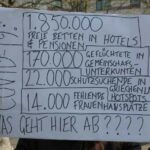 COVID-19
1.850.000
FREIE BETTEN IN HOTELS
& PENSIONEN
170.000 GEFLÜCHTETE IN
GEMEINSCHAFTS-
UNTERKÜNFTEN
22.000 SCHUTZSUCHENDE IN
GRIECHENLAND
HOTSPOTS
14.000 FEHLENDE
FRAUENHAUSPLÄTZE
WAS GEHT HIER AB????